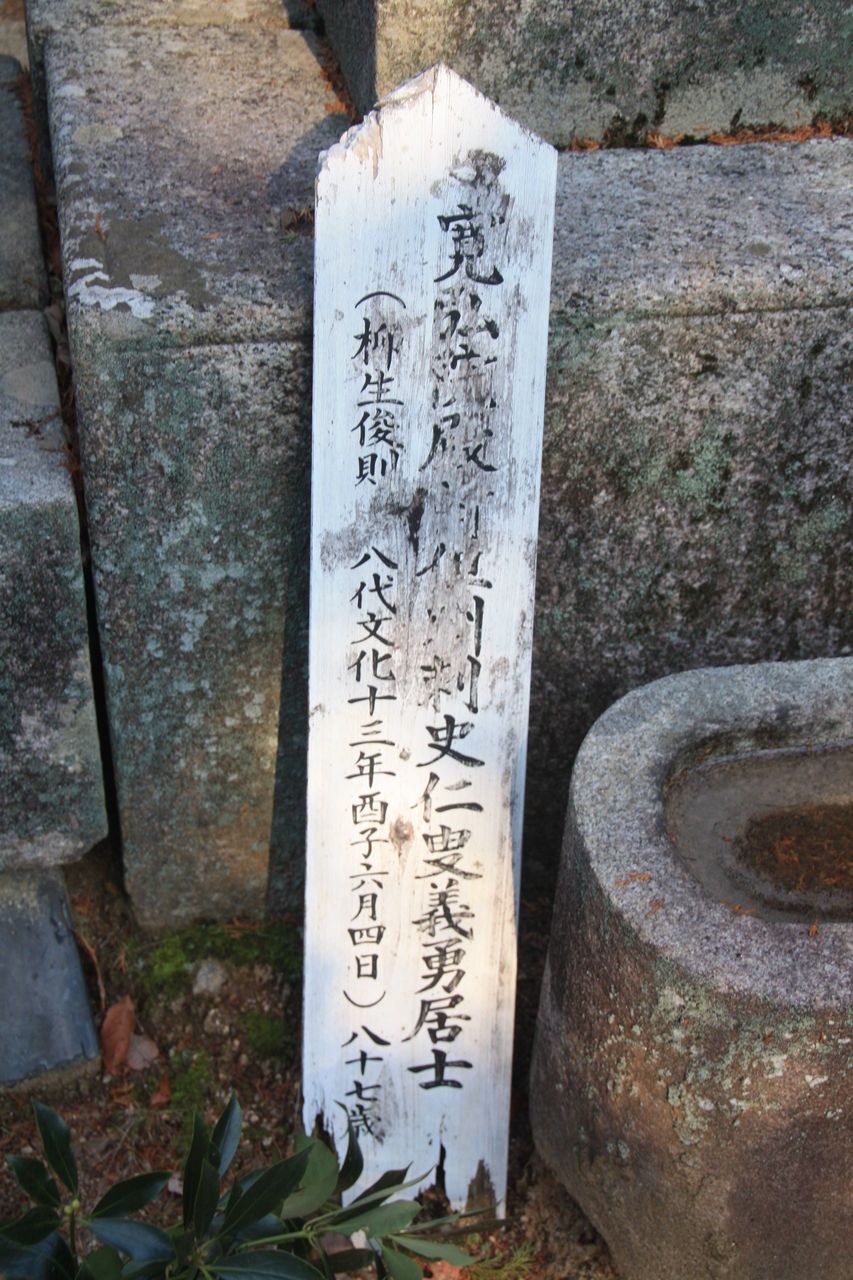 寛弘殿前但州刺史仁叟義勇居士
（柳生俊則 八代文化十三年酉子六月四日）八十七歳